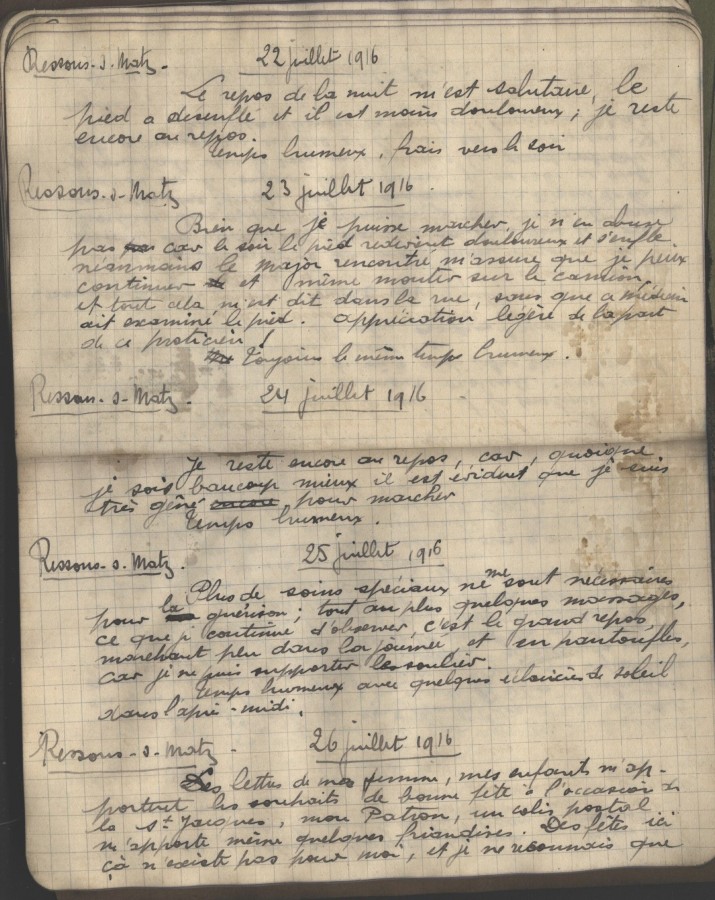 Ressons-s-Matz. 22 juillet 1916
Le repos de la nuit m'est salutaire, le
pied a desenflé et il est moins douloureux ; je reste
encore au repos.
Temps brumeux, frais vers le soir
Ressons-s-Matz 23 juillet 1916.
Bien que je puisse marcher, je n'en abuse
pas car le soir le pied redevient douloureux et s'enfle.
néanmoins le major rencontré m'assure que je peux
continuer et même monter sur le camion,
et tout cela, m'est dit dans la rue, sans que ce médecin
ait examiné le pied. appréciation légère de la part
de ce praticien !
Toujours le même temps brumeux.
Ressons-s-Matz. 24 juillet 1916
Je reste encore au repos, car, quoique
je sois beaucoup mieux il est évident que je suis
très gêné encore pour marcher
Temps brumeux.
Ressons-s-Matz. 25 juillet 1916
Plus de soins spéciaux ne me sont nécessaires
pour la guérison ; tout au plus quelques massages,
ce que je continue d'observer, c'est le grand repos,
marchant peu dans la journée, et en pantoufles,
car je ne puis supporter le soulier.
Temps brumeux avec quelques éclaircies de soleil
dans l'après-midi.
Ressons-s-Matz. 26 juillet 1916
Des lettres de ma femme, mes enfants m'ap-
portent les souhaits de bonne fête à l'occasion de
la St Jacques, mon Patron, un colis postal
m'apporte même quelques friandises. Des fêtes ici
çà n'existe pas pour moi, et je ne reconnais que